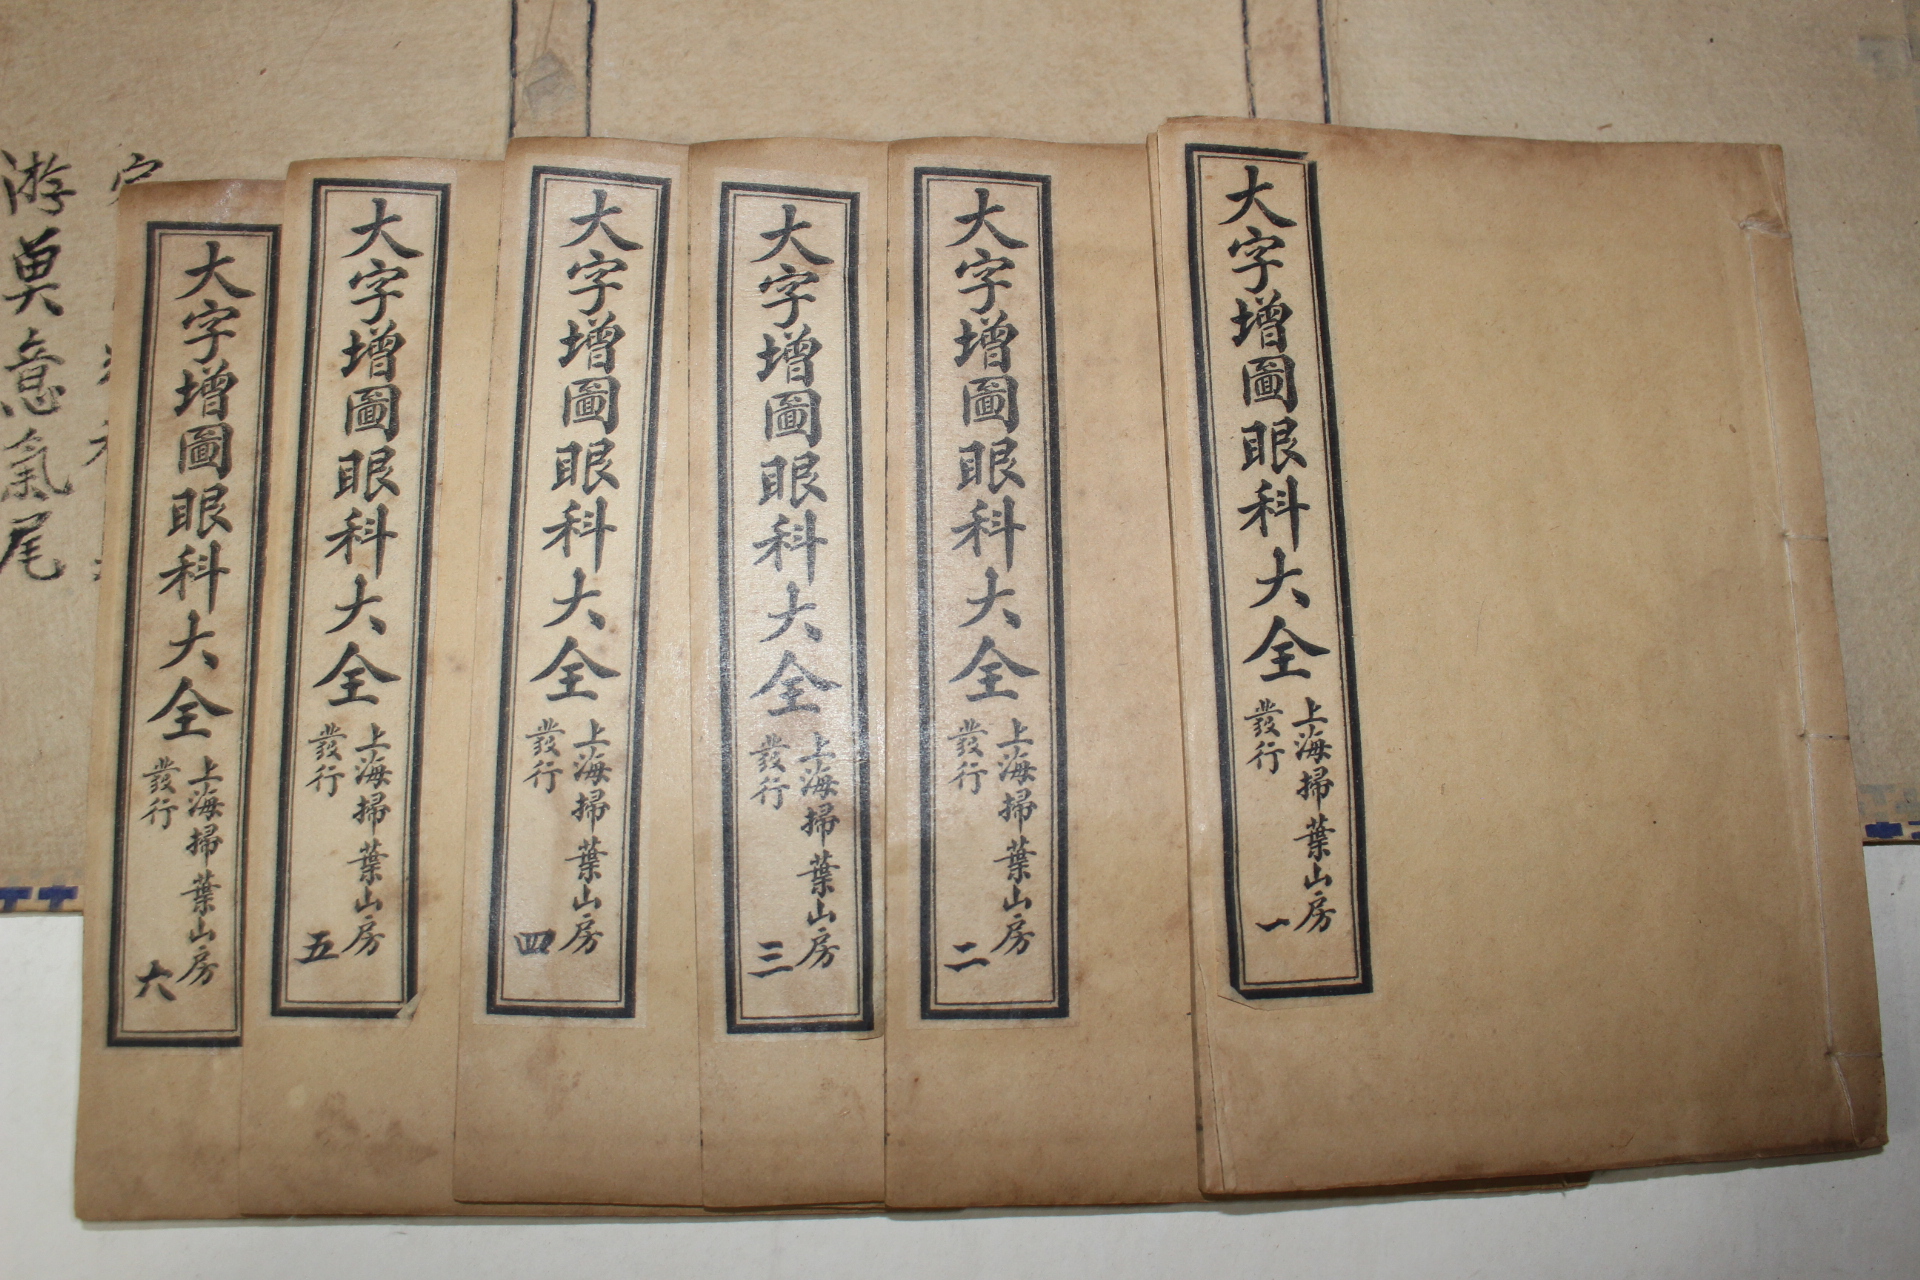 大字增圖眼科大全
上海掃葉山房
發行
一
大字增圖眼科大全
上海掃葉山房
發行
二
大字增圖眼科大全
上海掃葉山房
發行
三
大字增圖眼科大全
上海掃葉山房
發行
四
大字增圖眼科大全
上海掃葉山房
發行
五
大字增圖眼科大全
上海掃葉山房
發行
六
游莫意氣尾